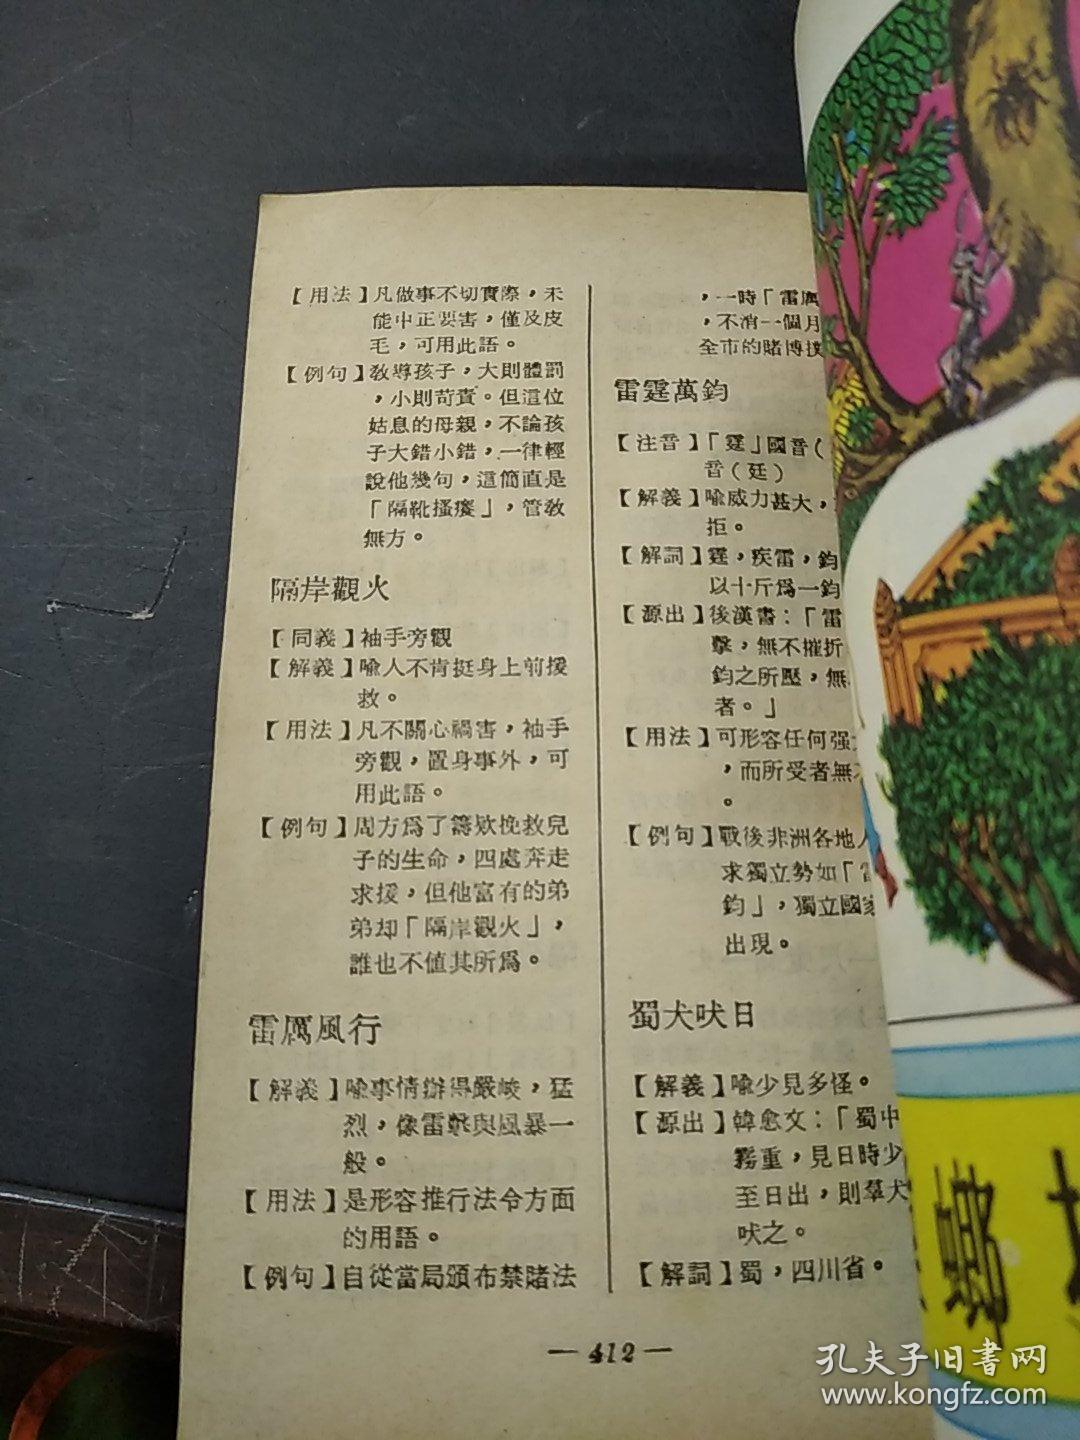 【用法】凡做事不切實際，未
能中正要害，僅及皮
毛，可用此語。
【例句】教導孩子，大則體罰
，小則苛責。但這位
姑息的母親，不論孩
子大錯小錯，一律輕
說他幾句，這簡直是
「隔靴搔癢」，管教
無方。
隔岸觀火
【同義】袖手旁觀
【解義】喻人不肯挺身上前援
救。
【用法】凡不關心禍害，袖手
旁觀，置身事外，可
用此語。
【例句】周方爲了籌欵挽救兒
子的生命，四處奔走
求援，但他富有的弟
弟却「隔岸觀火」，
誰也不値其所爲。
雷厲風行
【解義】喻事情辦得嚴峻，猛
烈，像雷擊與風暴一
般。
【用法】是形容推行法令方面
的用語。
【例句】自從當局頒布禁賭法
，一時「雷厲
，不消一個月
全市的賭博
雷霆萬鈞
【注音】「霆」國音（
音（廷）
【解義】喻威力甚大，
拒。
【解詞】霆，疾雷，鈞
以十斤爲一鈞
【源出】後漢書：「雷
擊，無不摧折
鈞之所壓，無
者。」
【用法】可形容任何强
，而所受者無
。
【例句】戰後非洲各地
求獨立勢如「
鈞」，獨立國
出現。
蜀犬吠日
【解義】喻少見多怪。
【源出】韓愈文：「蜀中
霧重，見日時少
至日出，則羣犬
吠之。
【解詞】蜀，四川省。
— 412 —
孔夫子旧書网
www.kongfz.com